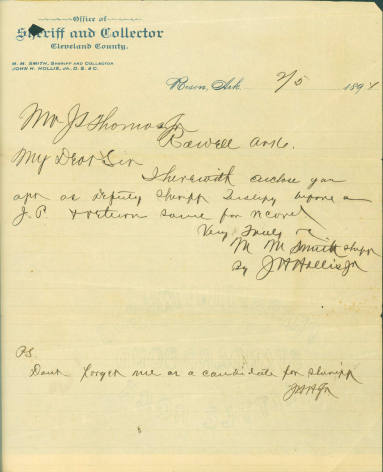 Office of
Sheriff and Collector
Cleveland County.
M. M. SMITH, SHERIFF AND COLLECTOR
JOHN H. HOLLIS, JR. D. S. & C.
Rison, Ark. 2/5 1894
Mr J. Thomas Jr
Rowell Ark.
My Dear Sir
I herewith enclose you
apt as deputy Sheriff before a
J. P. & return same for record
Very Truly
M M Smith Shff
By J H Hollis Jr
P.S.
Dont forget me as a candidate for Sheriff
JHH Jr